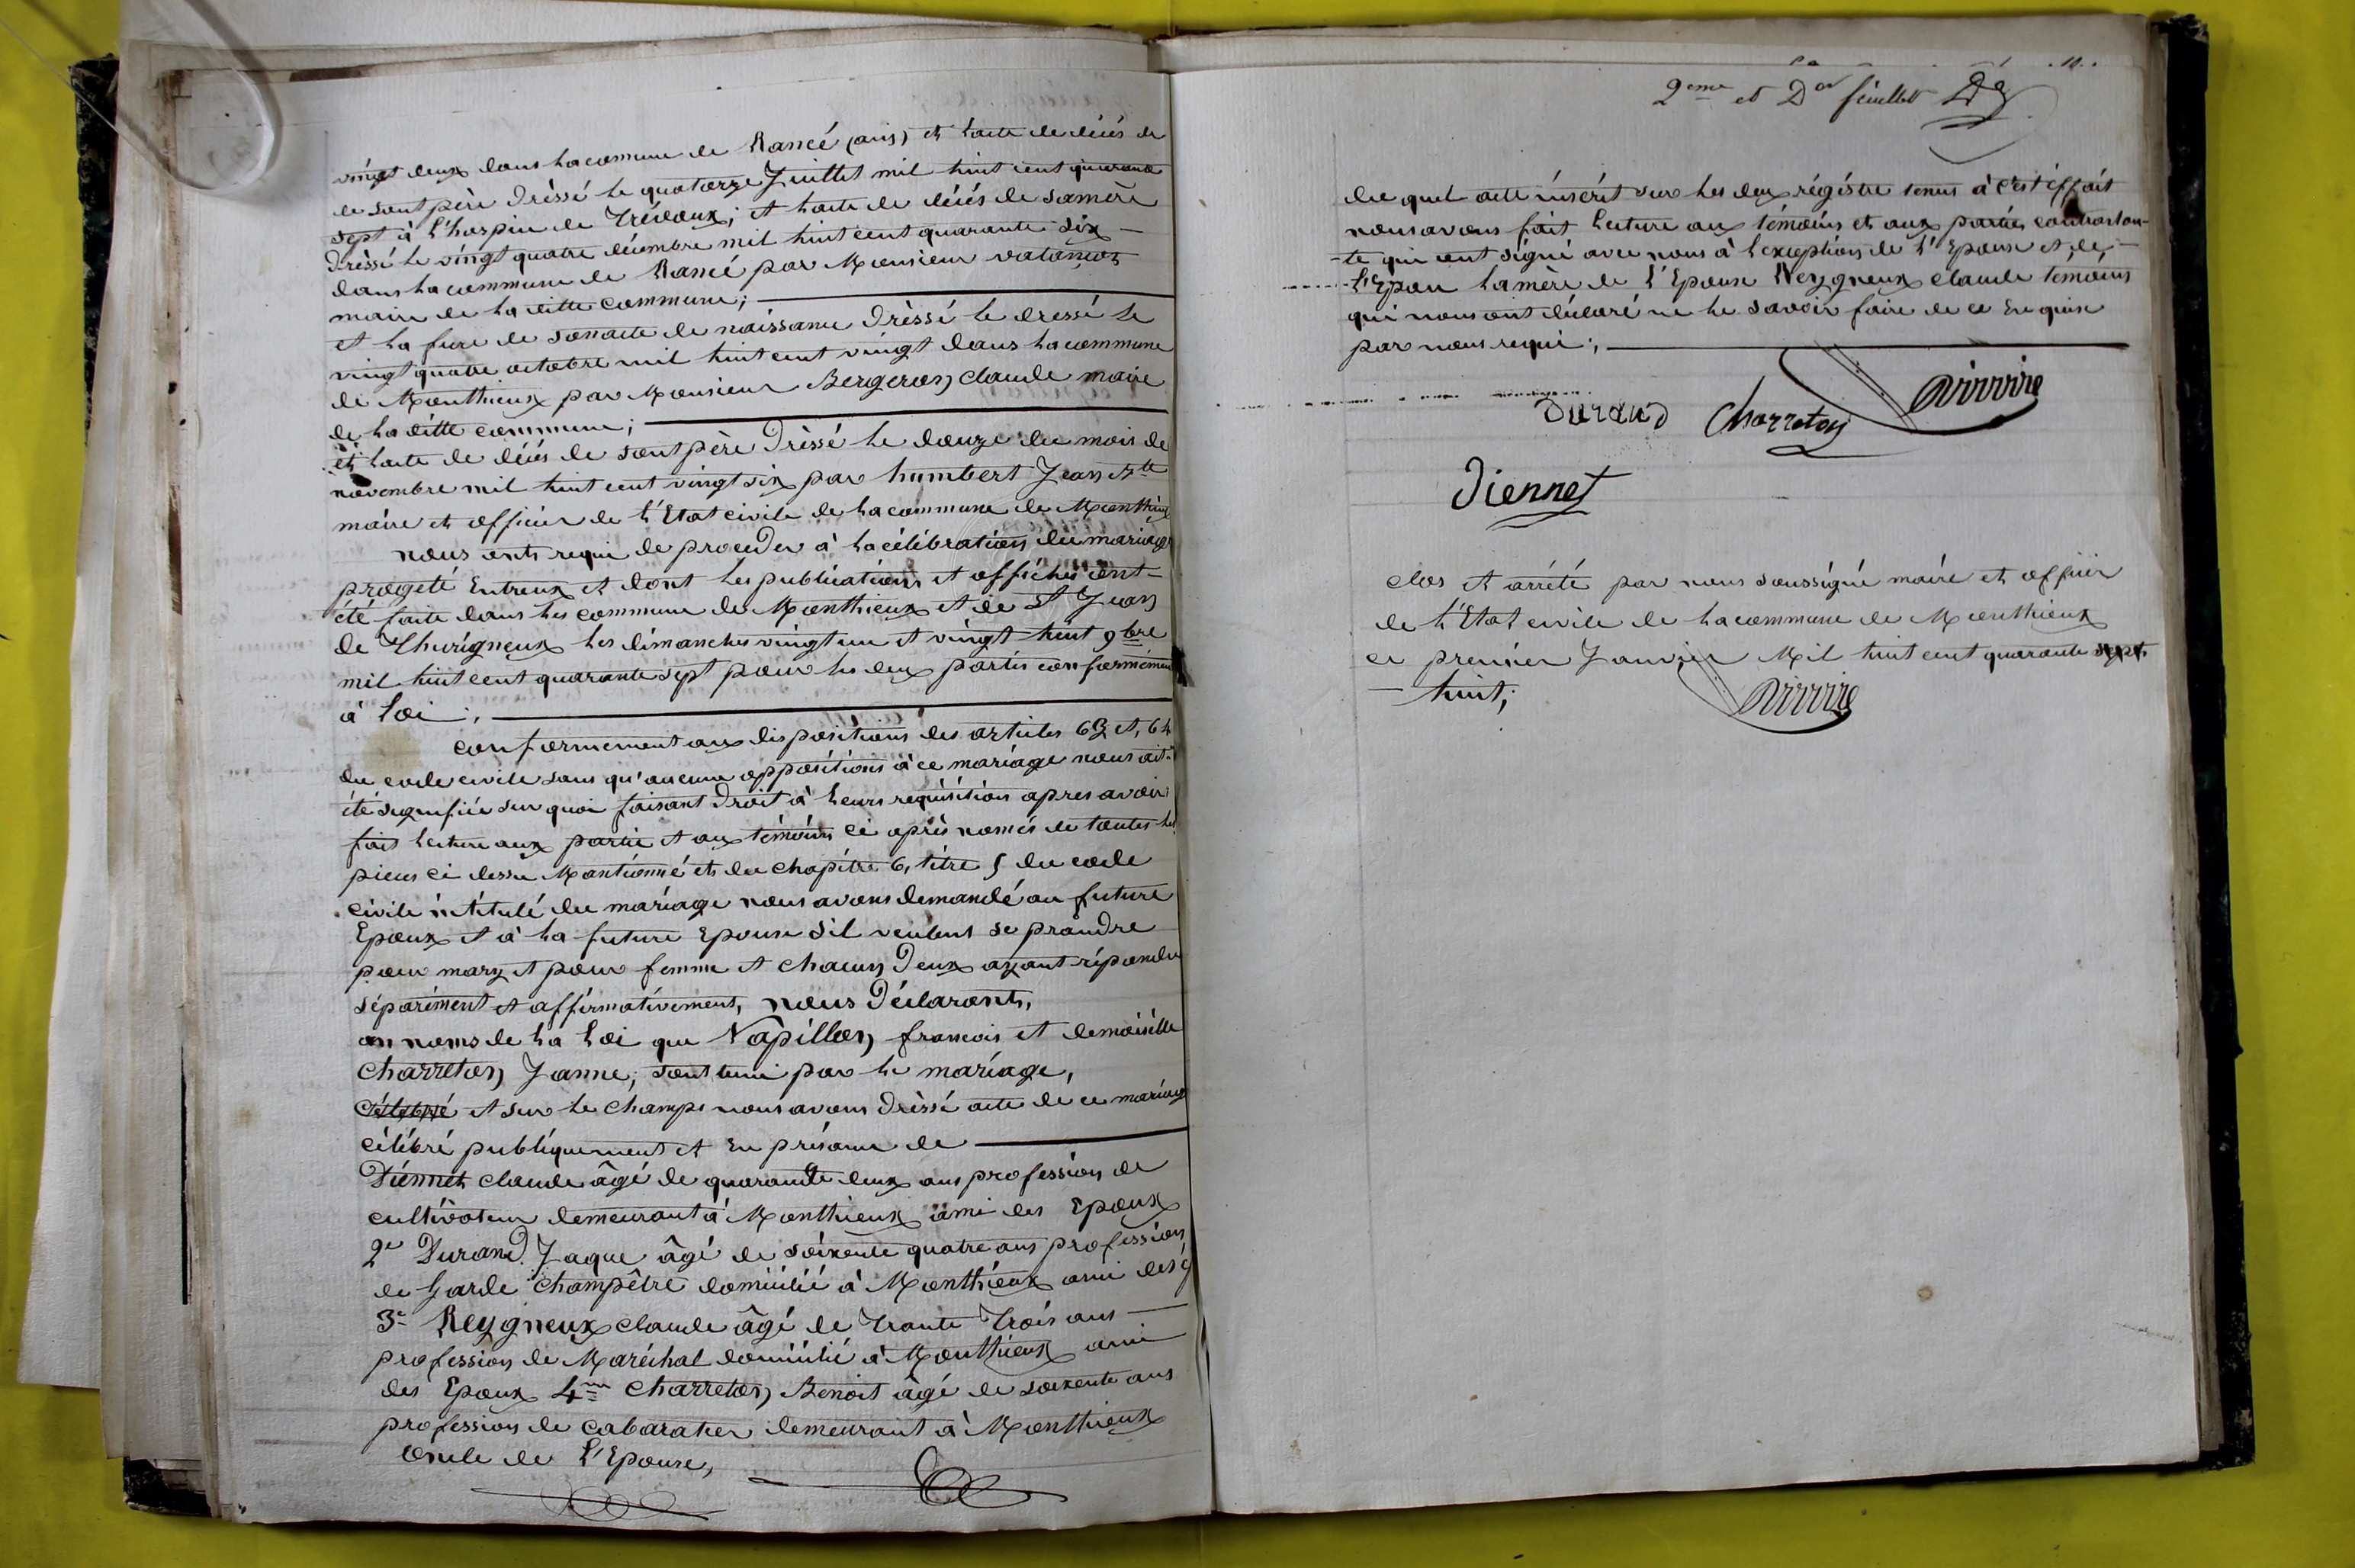 vingt deux dans la commune de Rancé (ain) et lacte de décés de
de sont père Dréssé le quatorze Juillet mil huit cent quarante
sept à l'hospice de Trévoux; et lacte de décés de samère
Dréssé le vingt quatre décembre mil huit cent quarante six
dans la commune de Rancé par Monsieur valançot
maire de la ditte commune;
et la future de sonacte de naissance Dréssé le dressé le
vingt quatre octobre mil huit cent vingt dans la commune
de Monthieux par Monsieur Bergeron claude maire
de la ditte commune;
et lacte de décés de sont père Dréssé le douze du mois de
novembre mil huit cent vingt six par humbert Jean Bte
maire et officier de l'Etat civile de la commune de Monthieux
nous onts requi de proceder à la célébration du mariage
progeté Entreux et dont les publications et affiches ont
été faite dans les commune de Monthieux et de St Jean
de Thurigneux les dimanches vingt un et vingt huit 9bre
mil huit cent quarante sept pour les deux partis conformément
à loi;
conformement aux dispositions des articles 63 et, 64
du code civile sans qu'aucune oppositions à ce mariage nous ait
été signifiée sur quoi faisant Droit à leurs requisition apres avoir
fait lecture aux partie et aux témoins ci après només de toutes les
pieces ci dessu Mantionné et du chapitre 6, titre 5 du code
civile intitulé du mariage nous avons demandé au future
Epoux et à la future Epouse s'il veulent se prandre
pour mary et pour femme et chacun Deux ayant répondu
séparément et affirmativement, nous Déclaronts,
au noms de la loi que Napillon francois et demoiselle
charreton Janne, sont uni par le mariage,
célébré et sur le champs nous avons Dréssé acte de ce mariage
célébré publiquement et En présance de
Diennet claude âgé de quarante deux ans profession de
cultivateur demeurant à Monthieux ami des Epoux
2e Durand Jaque âgé de soixente quatre ans profession
de Garde champêtre domicilié à Monthieux ami des é
3e Reygneux claude âgé de Trante Trois ans
profession de Maréchal domicilié à Monthieux ami
des Epoux 4me charreton Benoit âgé de soixente ans
profession de cabaratier demeurant à Monthieux
oncle de l'Epouse,
2eme et Der feuillet
du quel acte inscrit sur les deux régistre tenus à c'est éffait
nous avons fait lecture aux témoins et aux parties contractan-
-te qui ont signé avec nous à l'exception de l'Epouse et, de,
l'Epou la mère de l'Epouse Reygneux claude temoins
qui nous ont déclaré ne le savoir faire de ce Enquise
par nous requi;
Durand charreton
Diennet
clos et arrété par nous soussigné maire et officier
de l'Etat civile de la commune de Monthieux
ce premier Janvier Mil huit cent quarante sept
huit;